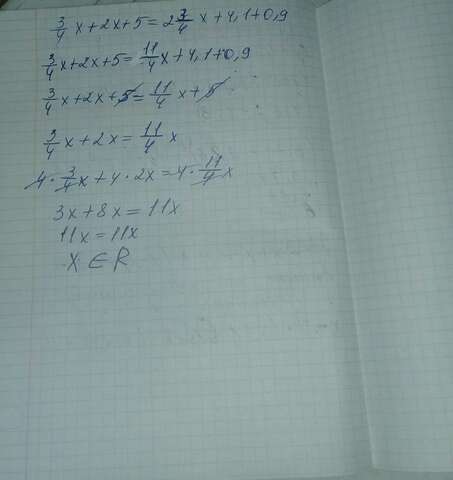 3/4 x + 2x + 5 = 2 3/4 x + 4,1 + 0,9
3/4 x + 2x + 5 = 11/4 x + 4,1 + 0,9
3/4 x + 2x + 5 = 11/4 x + 5
3/4 x + 2x = 11/4 x
4 · 3/4 x + 4 · 2x = 4 · 11/4 x
3x + 8x = 11x
11x = 11x
x ∈ R